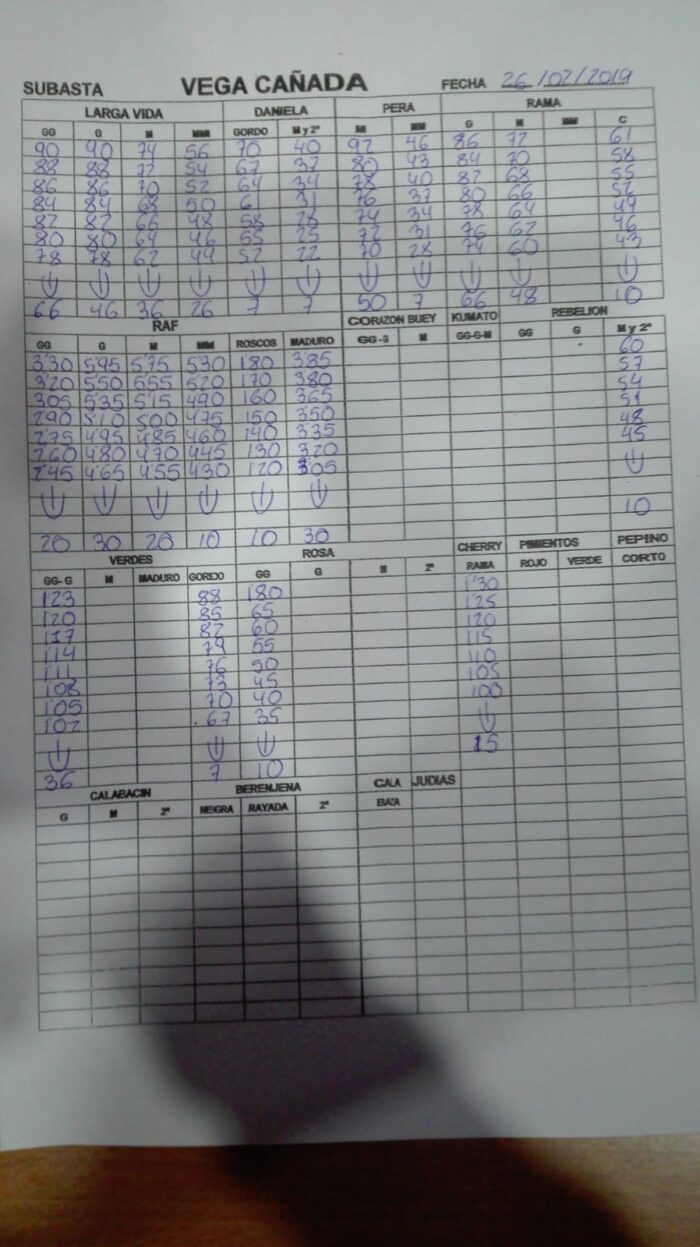 SUBASTA VEGA CAÑADA FECHA 26/02/2019
LARGA VIDA DANIELA PERA RAMA
GG G M MM GORDO M y 2ª M MM G M MM C
90 90 74 56 70 40 92 46 86 72 61
88 88 72 54 67 37 80 43 84 70 58
86 86 70 52 64 34 78 40 82 68 55
84 84 68 50 61 31 76 37 80 66 52
82 82 66 48 58 28 74 34 78 64 49
80 80 64 46 55 25 72 31 76 62 46
78 78 62 44 52 22 70 28 74 60 43
66 46 36 26 7 7 50 7 66 48 10
RAF CORAZON BUEY KUMATO REBELION
GG G M MM ROSCOS MADURO GG-G M GG-G-M GG G M y 2ª
3'30 5'95 5'75 5'30 180 3'85 60
3'20 550 555 520 170 380 57
305 535 515 490 160 365 54
290 510 500 475 150 350 51
275 495 485 460 140 335 48
260 480 470 445 130 320 45
245 465 455 430 120 305
10
20 30 20 10 10 30
VERDES ROSA CHERRY PIMIENTOS PEPINO
GG-G M MADURO GORDO GG G M 2ª RAMA ROJO VERDE CORTO
123 88 180 1'30
120 85 65 125
117 82 60 120
114 79 55 115
111 76 50 110
108 73 45 105
105 70 40 100
102 67 35
36 7 10 15
CALABACIN BERENJENA CALA JUDIAS
G M 2ª NEGRA RAYADA 2ª BAZA